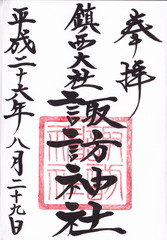 奉拝
鎮西大社
諏訪神社
平成二十六年八月二十九日